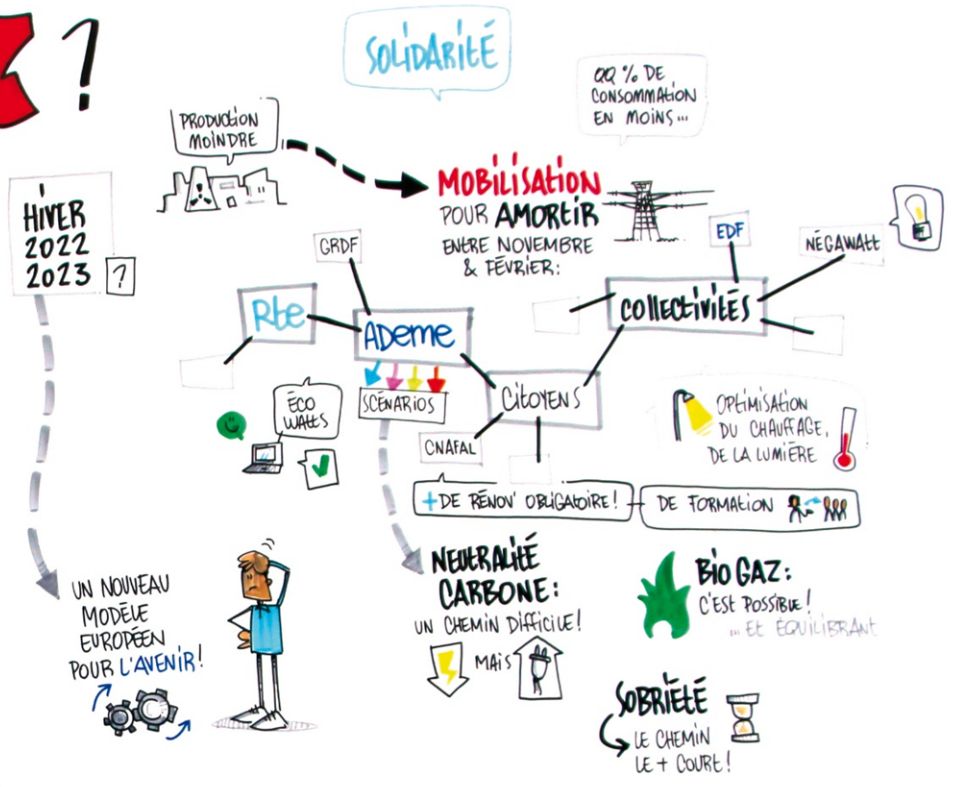 ?
SOLIDARITÉ
QQ % DE
CONSOMMATION
EN MOINS...
PRODUCTION
MOINDRE
MOBILISATION
POUR AMORTIR
ENTRE NOVEMBRE
& FÉVRIER:
HIVER
2022
2023
?
GRDF
EDF
NÉGAWATT
Rte
ADEME
COLLECTIVITÉS
SCÉNARIOS
CITOYENS
ÉCO
WATTS
CNAFAL
OPTIMISATION
DU CHAUFFAGE,
DE LA LUMIÈRE
+ DE RÉNOV' OBLIGATOIRE!
DE FORMATION
UN NOUVEAU
MODÈLE
EUROPÉEN
POUR L'AVENIR!
NEUTRALITÉ
CARBONE:
UN CHEMIN DIFFICILE!
MAIS
BIO GAZ:
C'EST POSSIBLE!
... ET ÉQUILIBRANT
SOBRIÉTÉ
LE CHEMIN
LE + COURT!